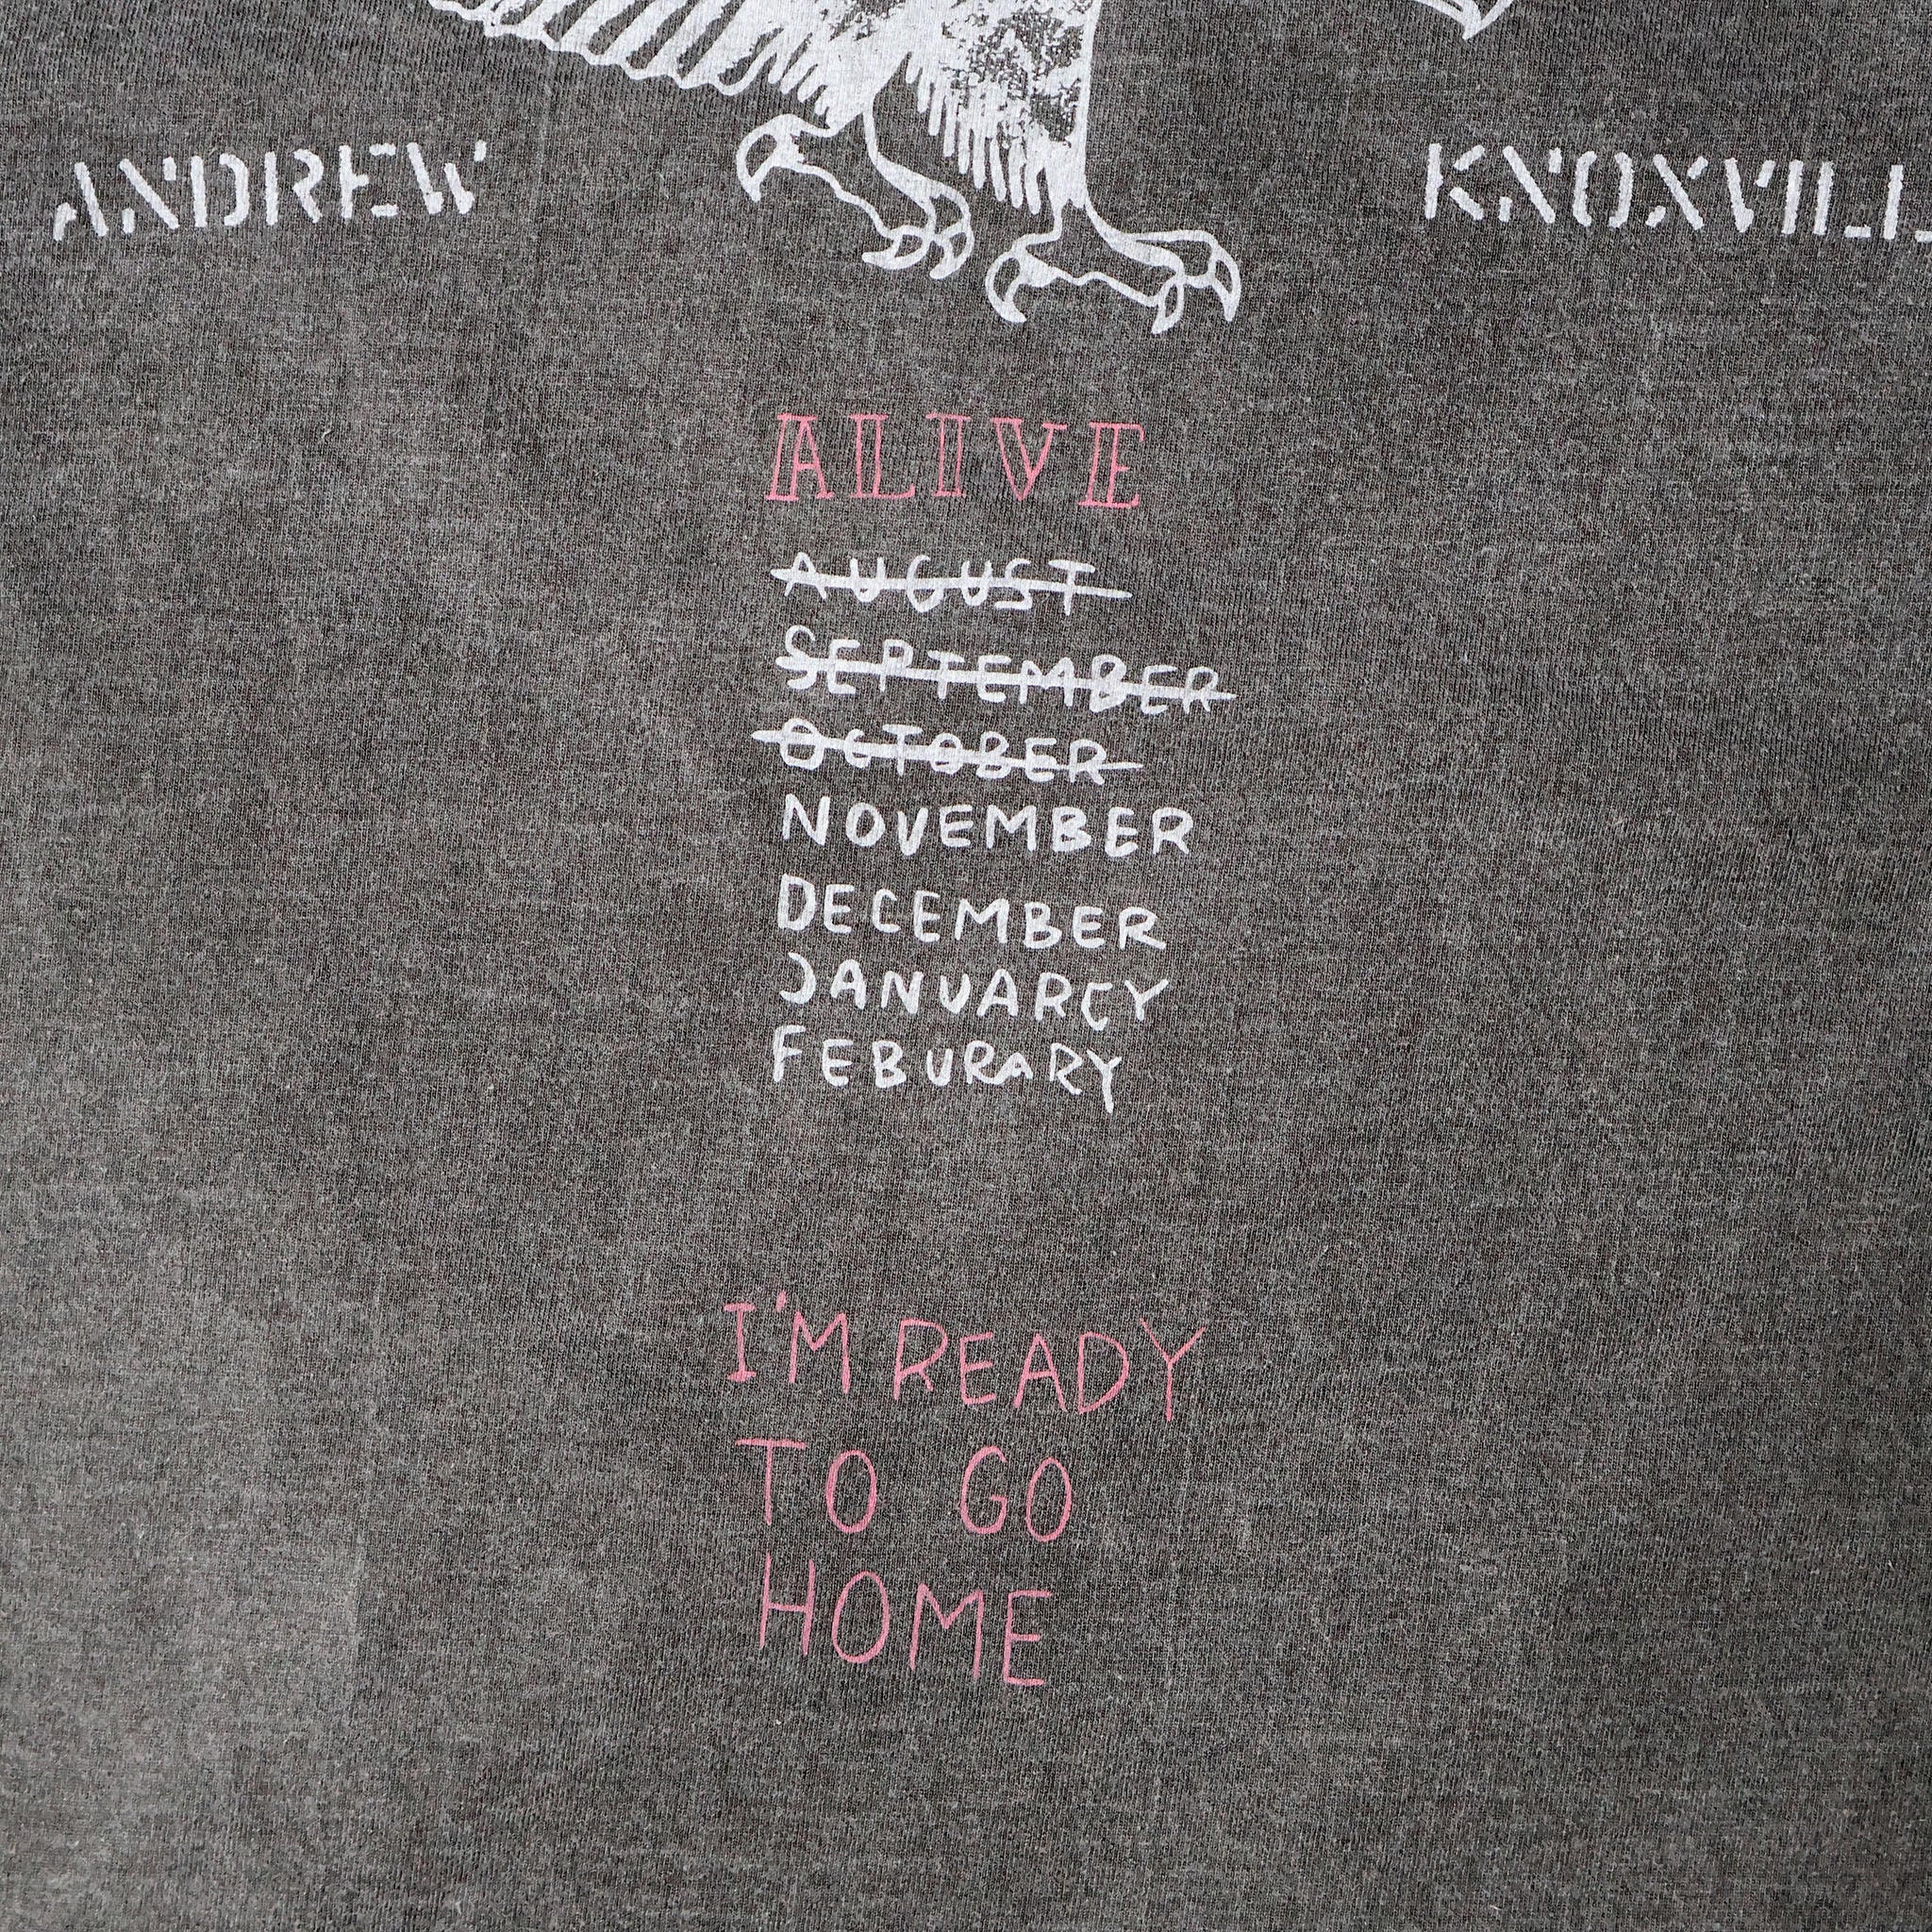 ANDREW
KNOXVILL
ALIVE
AUGUST
SEPTEMBER
OCTOBER
NOVEMBER
DECEMBER
JANUARCY
FEBURARY
I'M READY
TO GO
HOME